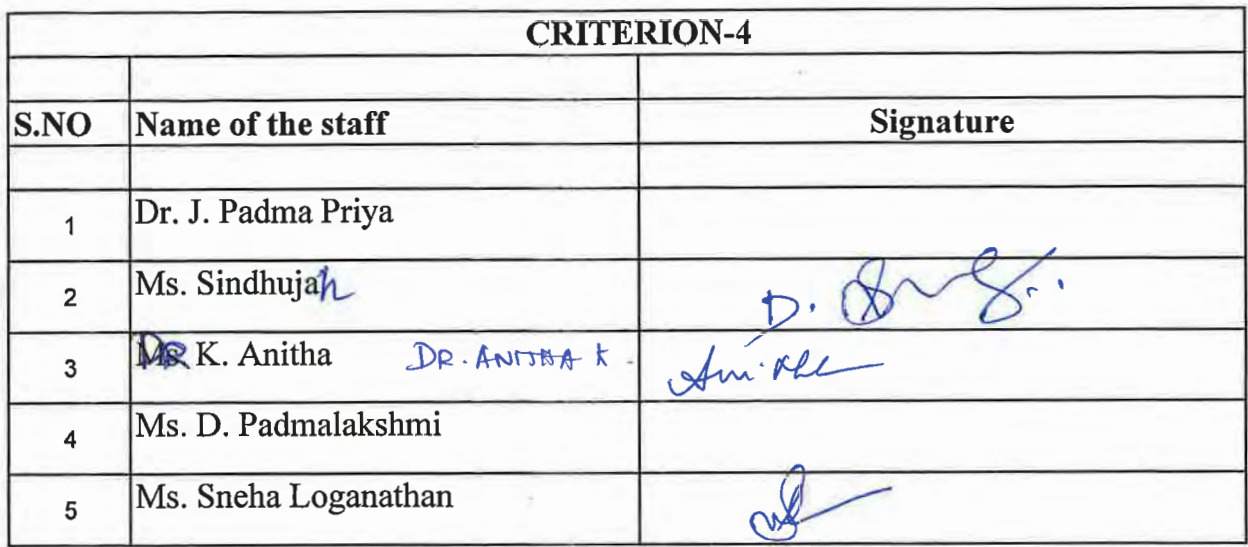 CRITERION-4
S.NO Name of the staff Signature
1 Dr. J. Padma Priya
2 Ms. Sindhujah D.
3 DR K. Anitha DR. ANITHA K.
4 Ms. D. Padmalakshmi
5 Ms. Sneha Loganathan